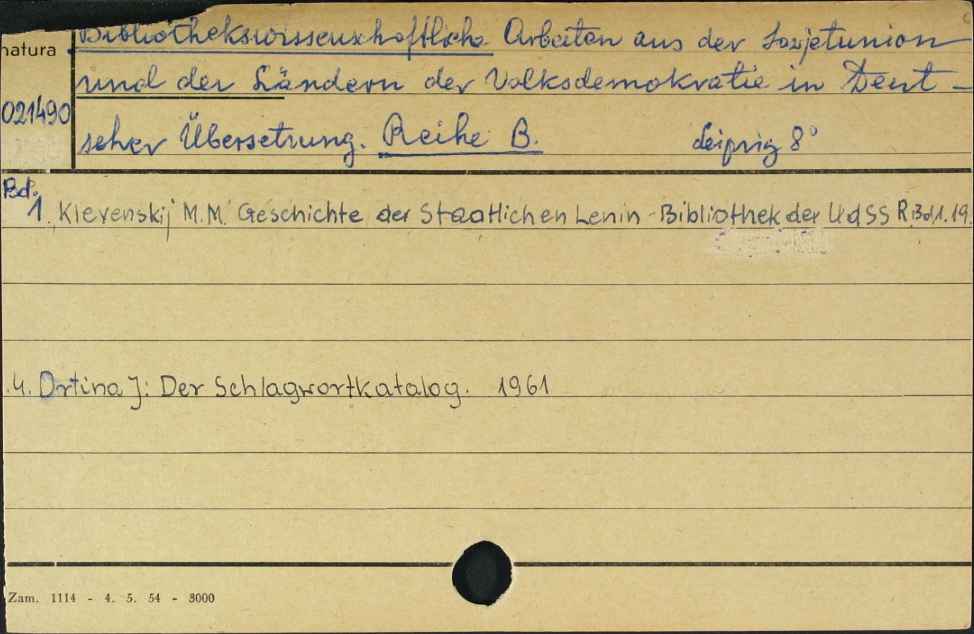 Bibliothekswissenschaftliche Arbeiten aus der Sowjetunion
natura
und der Ländern der Volksdemokratie in Deut-
021490
scher Übersetzung. Reihe B. Leipzig 8°
Bd.
1. Klevenskij M.M. Geschichte der Staatlichen Lenin-Bibliothek der UdSSR Bd1. 19
4. Drtina J: Der Schlagwortkatalog. 1961
Zam. 1114 - 4. 5. 54 - 3000